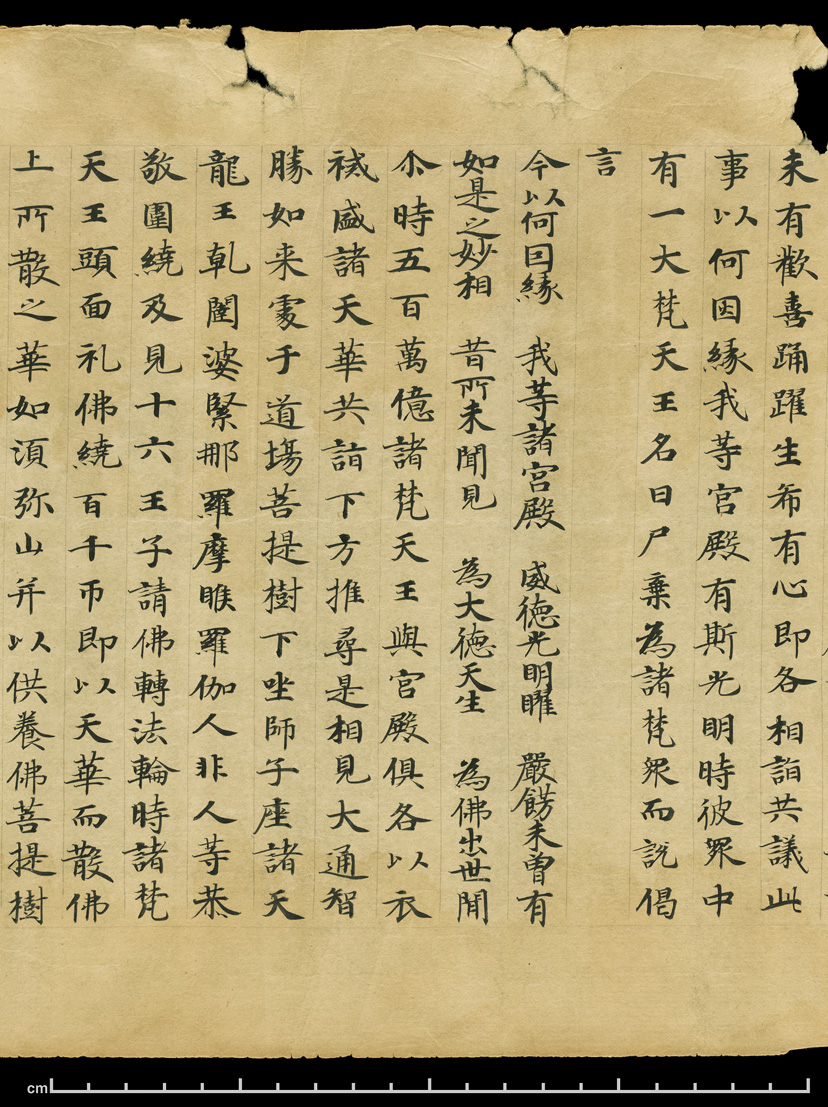 未有歡喜踊躍生希有心即各相詣共議此
事以何因緣我等宮殿有斯光明時彼衆中
有一大梵天王名曰尸棄為諸梵衆而説偈
言
今以何因緣 我等諸宮殿 威德光明曜 嚴餝未曾有
如是之妙相 昔所未聞見 為大德天生 為佛出世間
尒時五百萬億諸梵天王與宮殿俱各以衣
祴盛諸天華共詣下方推尋是相見大通智
勝如来處于道場菩提樹下坐師子座諸天
龍王乹闥婆緊那羅摩睺羅伽人非人等恭
敬圍繞及見十六王子請佛轉法輪時諸梵
天王頭面礼佛繞百千帀即以天華而散佛
上所散之華如須弥山并以供養佛菩提樹